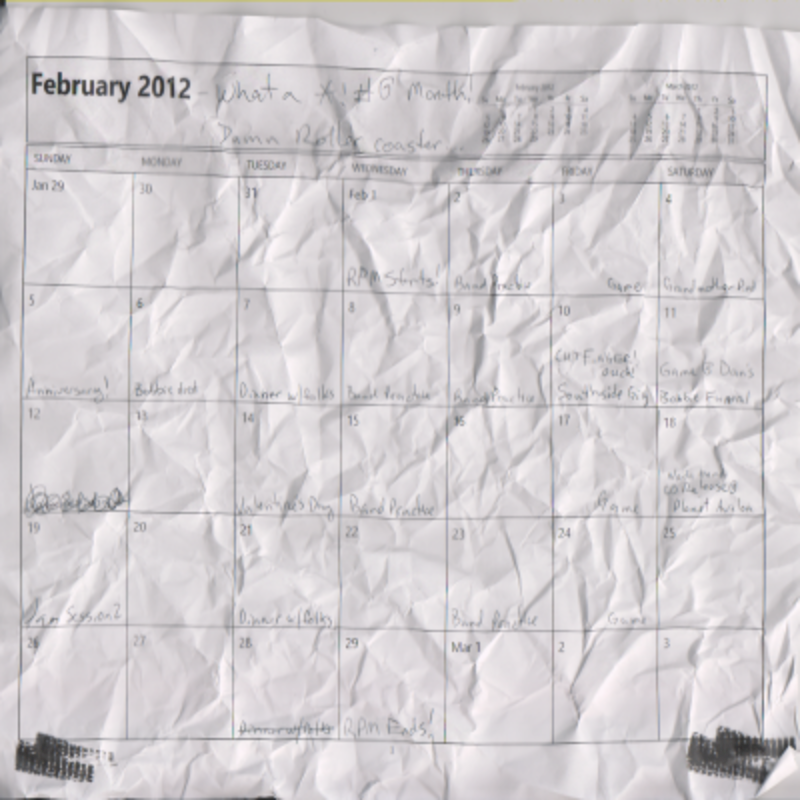 February 2012 - What a X!#G Month!
Damn Roller coaster
SUNDAY MONDAY TUESDAY WEDNESDAY THURSDAY FRIDAY SATURDAY
Jan 29 30 31 Feb 1 2 3 4
RPM Starts! Band Practice Game Grandmother Died
5 6 7 8 9 10 11
Cut Finger!
ouch!
Game @ Dean's
Anniversary! Bobbie died Dinner w/folks Band Practice Band Practice Southside Gig Bobbie Funeral
12 13 14 15 16 17 18
CD Release @
Valentine's Day Band Practice Game Planet Avalon
19 20 21 22 23 24 25
Jam Session? Dinner w/folks Band Practice Game
26 27 28 29 Mar 1 2 3
Dinner w/folks RPM Ends!